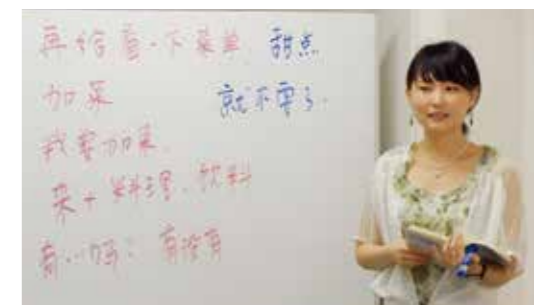 再给看一下菜单 甜点
加菜 就不要了.
我要加菜.
菜+料理、饮料
有…吗? 有没有